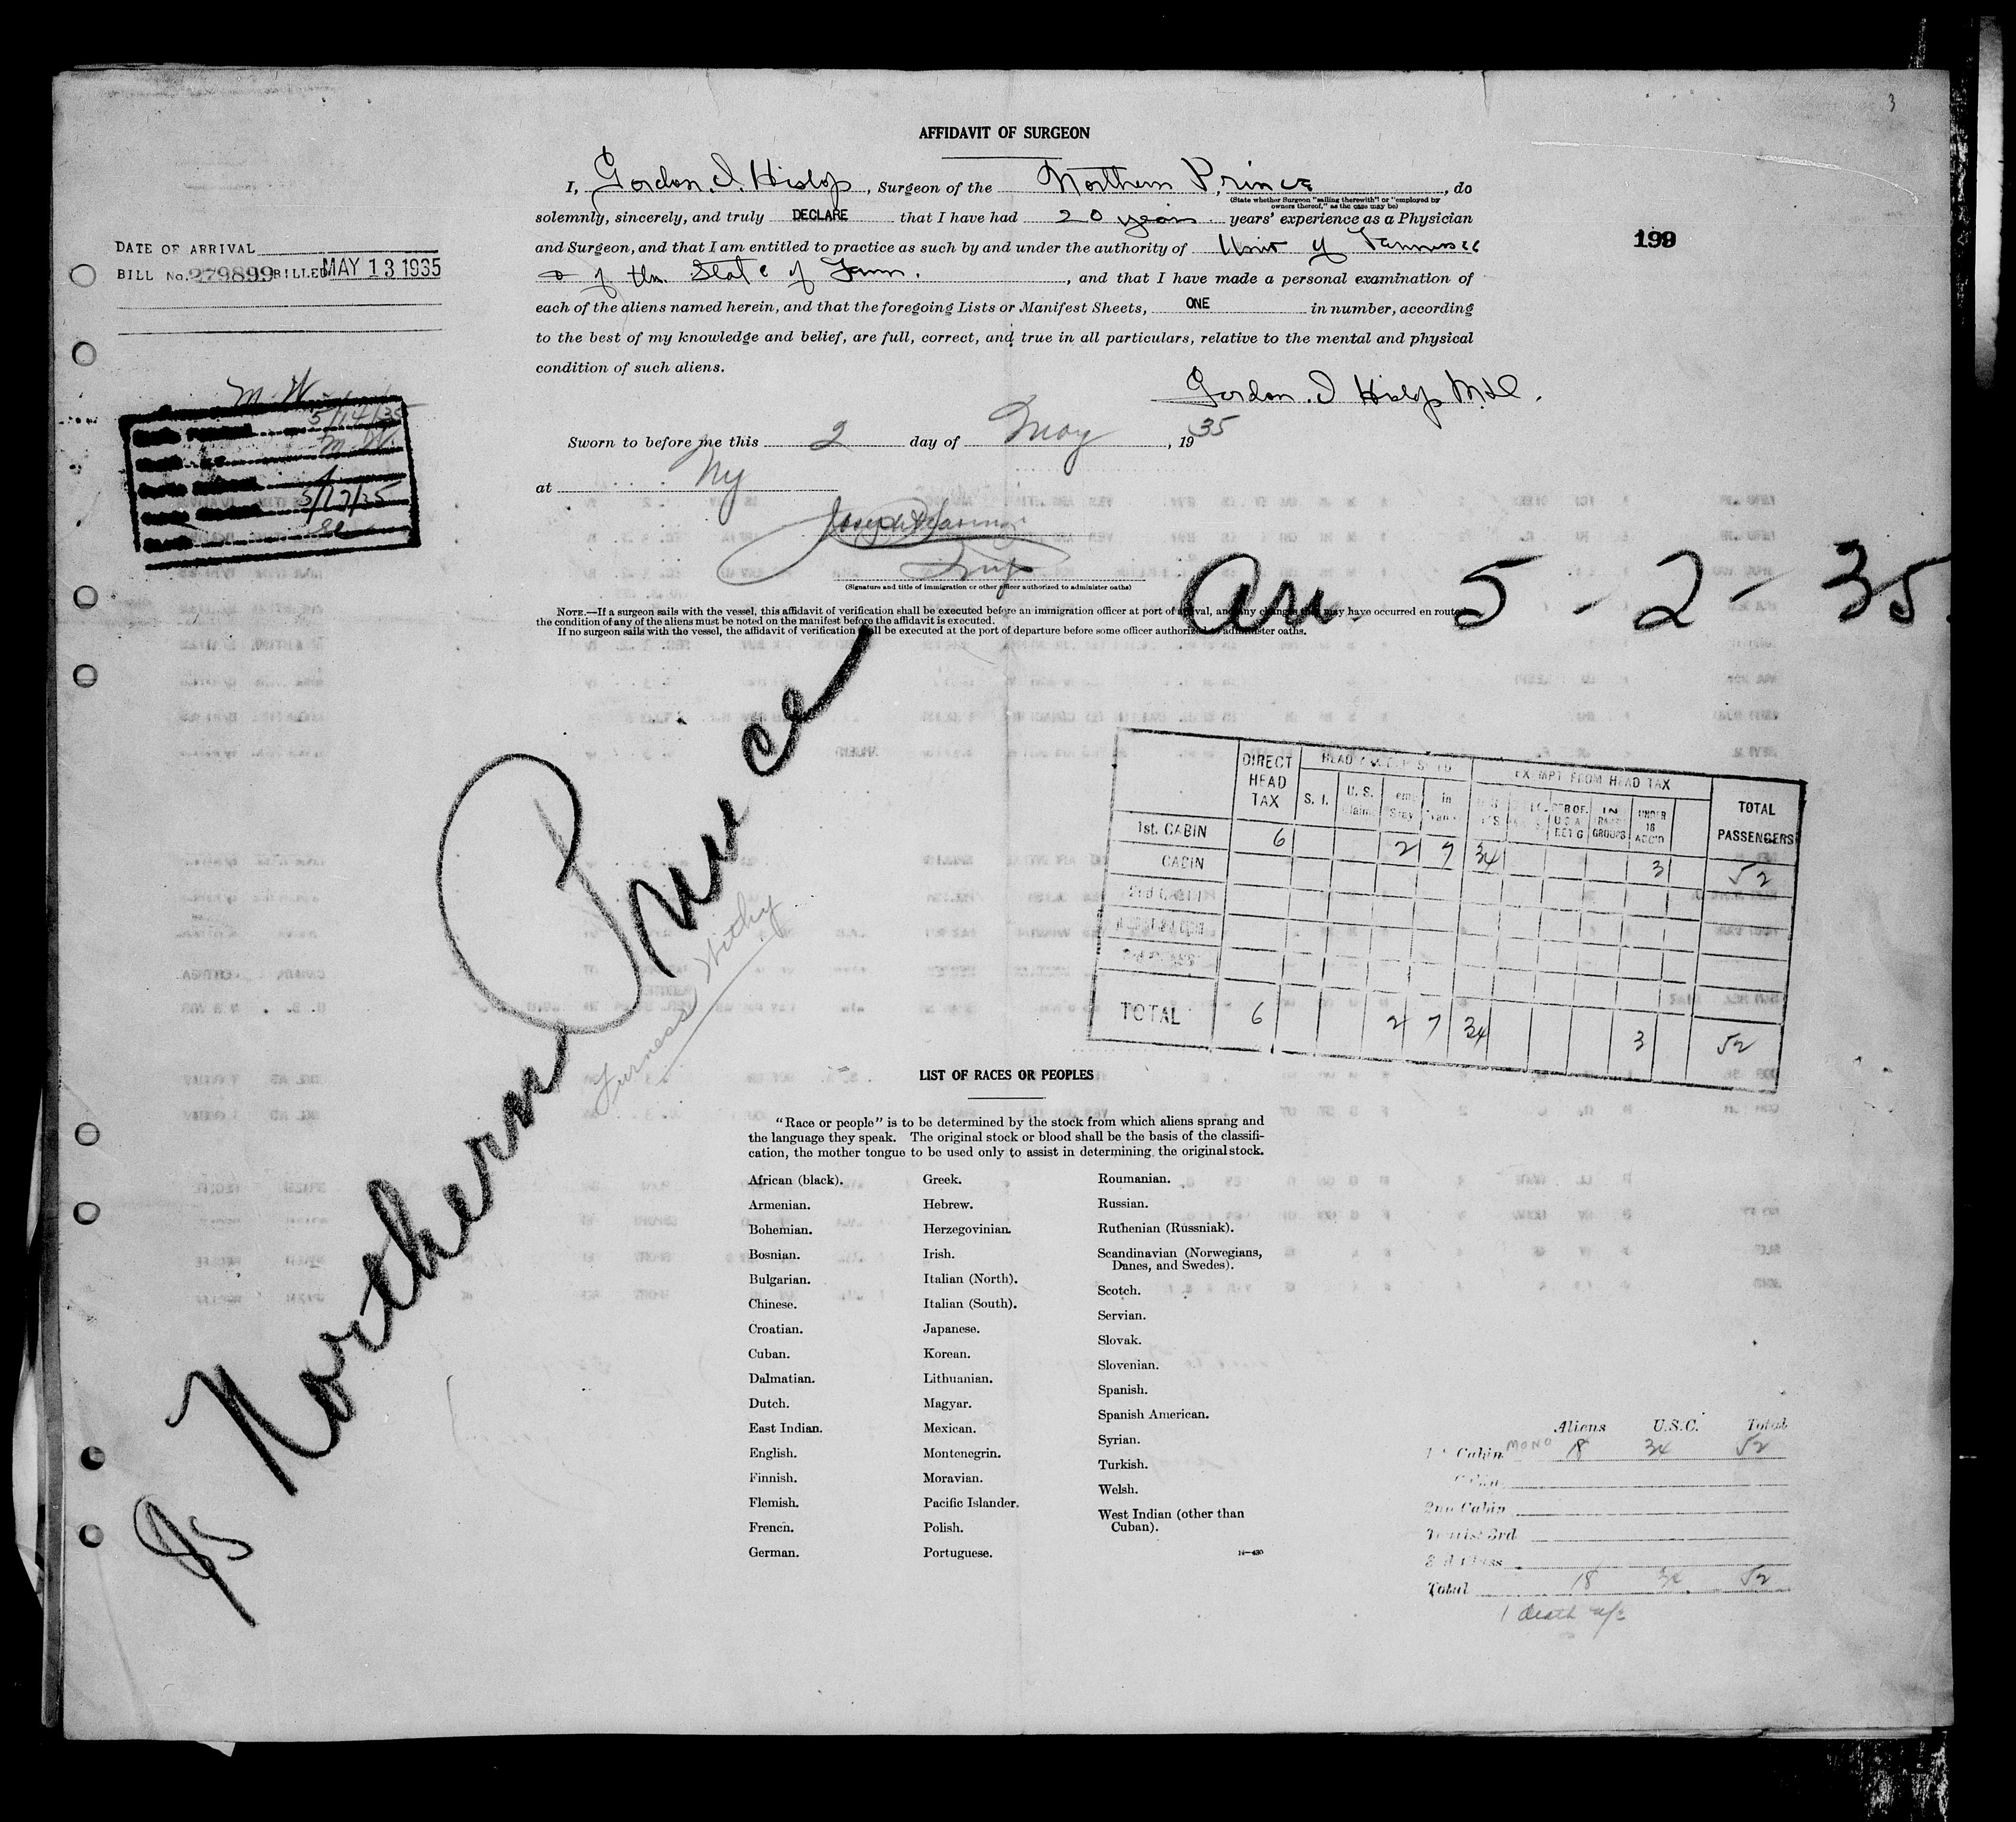 3
AFFIDAVIT OF SURGEON
I, Gordon. I. Hislop, Surgeon of the Northern Prince, do
(State whether Surgeon "sailing therewith" or "employed by
owners thereof," as the case may be)
solemnly, sincerely, and truly DECLARE that I have had 20 years years' experience as a Physician
and Surgeon, and that I am entitled to practice as such by and under the authority of Univ of Tennessee
of the State of Tenn., and that I have made a personal examination of
each of the aliens named herein, and that the foregoing Lists or Manifest Sheets, ONE in number, according
to the best of my knowledge and belief, are full, correct, and true in all particulars, relative to the mental and physical
condition of such aliens.
Gordon. I Hislop M.D.
Sworn to before me this 2 day of May, 1935
at NY
(Signature and title of immigration or other officer authorized to administer oaths)
NOTE.—If a surgeon sails with the vessel, this affidavit of verification shall be executed before an immigration officer at port of arrival, and any changes that may have occurred en route
the condition of any of the aliens must be noted on the manifest before the affidavit is executed.
If no surgeon sails with the vessel, the affidavit of verification shall be executed at the port of departure before some officer authorized administer oaths.
DATE OF ARRIVAL
BILL No. 279899 BILLED MAY 13 1935
199
M. W.
5/14/35
M. W.
5/17/35
Arr. 5-2-35
SS Northern Prince
Furness Withy
DIRECT HEAD TAX
EXEMPT FROM HEAD TAX
TOTAL PASSENGERS
S. I.
U. S.
IN
GROUPS
UNDER 16
1st. CABIN 6 2 7 34 3 52
CABIN
TOTAL 6 2 7 34 3 52
LIST OF RACES OR PEOPLES
"Race or people" is to be determined by the stock from which aliens sprang and
the language they speak. The original stock or blood shall be the basis of the classifi-
cation, the mother tongue to be used only to assist in determining the original stock.
African (black).
Armenian.
Bohemian.
Bosnian.
Bulgarian.
Chinese.
Croatian.
Cuban.
Dalmatian.
Dutch.
East Indian.
English.
Finnish.
Flemish.
French.
German.
Greek.
Hebrew.
Herzegovinian.
Irish.
Italian (North).
Italian (South).
Japanese.
Korean.
Lithuanian.
Magyar.
Mexican.
Montenegrin.
Moravian.
Pacific Islander.
Polish.
Portuguese.
Roumanian.
Russian.
Ruthenian (Russniak).
Scandinavian (Norwegians,
Danes, and Swedes).
Scotch.
Servian.
Slovak.
Slovenian.
Spanish.
Spanish American.
Syrian.
Turkish.
Welsh.
West Indian (other than
Cuban).
14—430
Aliens U.S.C. Total
Cabin MONO 18 34 52
2nd Cabin
Tourist 3rd
3rd Class
Total 18 34 52
1 death